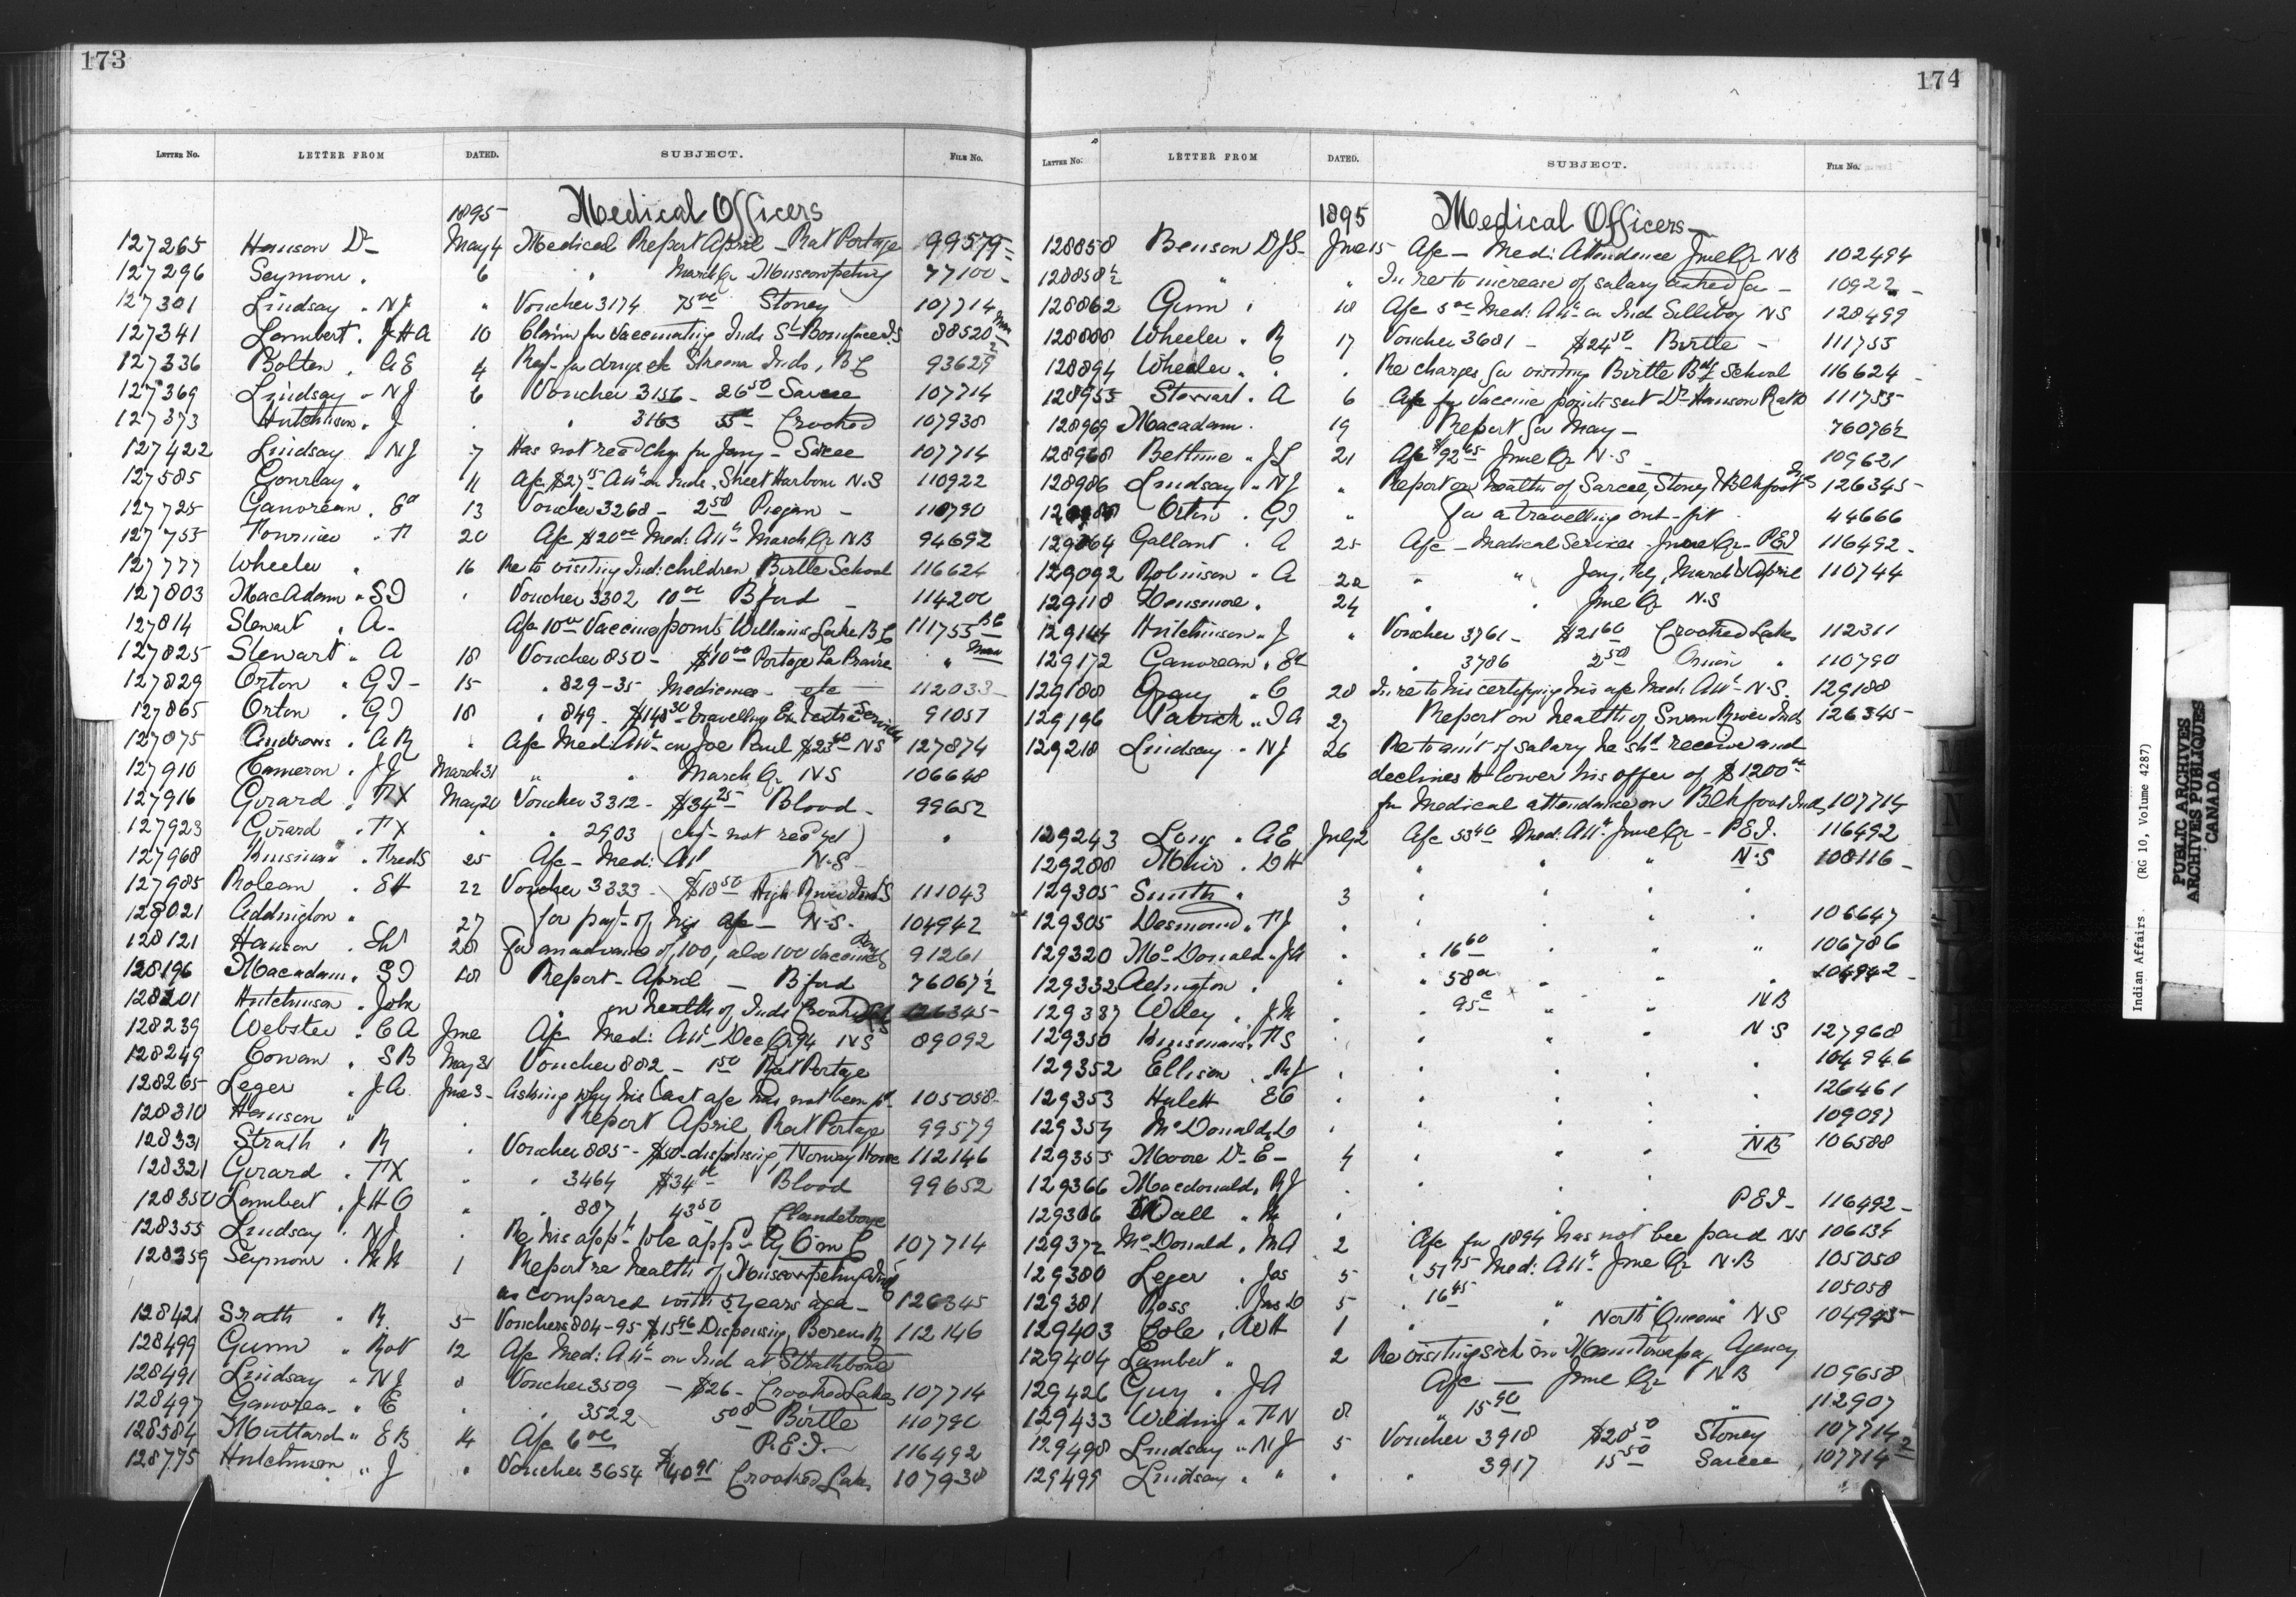 173
LETTER No. LETTER FROM DATED. SUBJECT. FILE No.
1895 Medical Officers
127265 Hanson Dr May 4 Medical Report April - Rat Portage 99579
127296 Seymour " 6 " March Qr Muscowpetung 77100
127301 Lindsay " NJ " Voucher 3174 75 00 Stoney 107714
127341 Lambert " J H A 10 Claim for Vaccinating Inds St Boniface I.S 88520
127336 Bolton " A E 4 Req for drugs etc Skeena Inds, B C 93629
127369 Lindsay " NJ 6 Voucher 3156 - 26 50 Sarcee 107714
127373 Hutchison " J " " 3163 Crooked 107938
127422 Lindsay " NJ 7 Has not rec'd chq for Jany - Sarcee 107714
127585 Gourlay " 11 A/c $27 75 Att on Inds, Sheet Harbour N.S 110922
127725 Ganoreau " Ed 13 Voucher 3268 - 2 50 Piegan - 110790
127755 20 A/c $20 00 Med: Att March Qr N B 94692
127777 Wheeler " 16 Re to visiting Ind: children Birtle School 116624
127803 MacAdam " S I " Voucher 3302 10 00 B'ford - 114200
127814 Stewart " A - A/c 10 00 Vaccine points Williams Lake B C 111755 B C
127825 Stewart " A 18 Voucher 850 - $10 00 Portage La Prairie " Man
127829 Orton " G I - 15 " 829-35 Medicines - etc 112033
127865 Orton " G I 18 " 849 - $148 30 travelling Ex & extra Services 91057
127875 Andrews " A R " A/c Med: Att on Joe Paul $23 60 NS 127874
127910 Cameron " J J March 31 " " March Qr NS 106648
127916 Girard " F X May 20 Voucher 3312 - $34 25 Blood - 99652
127923 Girard " F X " " 2903 (chq - not rec'd yet) "
127968 Kinsman " Fred S 25 A/c - Med: Att N.S
127985 Rolean " E H 22 Voucher 3333 - $18 50 High River Inds 111043
128021 Addington " 27 for pay't of his a/c - N.S. 104942
128121 Hanson " 28 for an advance of 100, also 100 vaccine 91261
128196 Macadam " S I 18 Report - April - B'ford 76067½
128201 Hutchinson " John " on health of Inds Crooked Lks 126345
128239 Webster " C A June A/c Med: Att Dec Qr 94 NS 89092
128249 Cowan " S B May 31 Voucher 882 - 1 50 Rat Portage
128265 Leger " J A June 3 Asking why his last a/c has not been p'd 105058
128310 Hanson " " Report April Rat Portage 99579
128331 Strath " R " Voucher 885 - $50 dispensing, Norway House 112146
128321 Girard " F X " " 3464 $34 00 Blood 99652
128350 Lambert " J H O " " 887 43 50 Clandeboye
128355 Lindsay " NJ " Re his app't to be app'd by O in C 107714
128359 Seymour " 1 Report re health of Muscowpetung Inds
as compared with 5 years ago - 126345
128421 Strath " R. 5 Vouchers 894-95 $15 96 Dispensing, Berens R 112146
128499 Gunn " Rob 12 A/c Med: Att on Ind at Strathbone
128491 Lindsay " NJ 8 Voucher 3509 - $26 - Crooked Lakes 107714
128497 Ganorea " E " " 3522 5 00 Birtle 110790
128584 Muttard " E B 14 A/c 6 00 P.E.I. 116492
128775 Hutchison " J " Voucher 3654 $40 95 Crooked Lake 107938
174
LETTER No. LETTER FROM DATED. SUBJECT. FILE No.
1895 Medical Officers
128858 Benson D J S June 15 A/c - Med: Attendance June Qr NB 102494
128858½ " " In re to increase of salary asked for - 10922
128862 Gunn " 18 A/c 5 00 Med: Att on Ind Silliboy NS 128499
128888 Wheeler " R 17 Voucher 3681 - $24 50 Birtle - 111755
128894 Wheeler " " " Re charges for visiting Birtle Bdg School 116624
128955 Stewart " A 6 A/c for Vaccine points sent Dr Hanson Rat P 111755
128969 Macadam " 19 Report for May - 76076½
128968 Bethune " J L 21 A/c $92 65 June Qr N.S 109621
128986 Lindsay " NJ " Report on health of Sarcee, Stoney & Blkfoot Inds 126345
Orton " G I " for a travelling out-fit 44666
129064 Gallant " A 25 A/c - Medical Services June Qr - P E I 116492
129092 Robinson " A 22 " " Jany, Feby, March & April 110744
129118 Densmore " 24 " " June Qr N.S
129144 Hutchinson " J " Voucher 3761 - $21 60 Crooked Lakes 112311
129172 Ganoreau " Ed " 3786 2 50 Onion " 110790
129188 Gray " C 28 In re to his certifying his a/c Med: Att - N.S. 129188
129196 Patrick " I A 27 Report on health of Swan River Inds 126345
129218 Lindsay " NJ 26 Re to am't of salary he sh'd receive and
declines to lower his offer of $1200 00
for Medical attendance on Blkfoot Inds 107714
129243 Long " A E July 2 A/c 53 40 Med: Att June Qr - P.E.I. 116492
129288 Muir " D H " " " N.S 108116
129305 Smith " 3 " " "
129305 Desmond " F J " " " " 106647
129320 McDonald " J A " " 16 60 " " 106786
129332 Adington " " " 58 00 " " 104942
129387 Wiley " J M " " 95 c " " NB
129350 Kinsman " F S " " " N.S 127968
129352 Ellison " R J " " " " 104946
129353 Hulett E C " " " " 126461
129354 McDonald " D " " " " 109097
129355 Moore Dr E - 4 " " NB 106588
129366 Macdonald " R J " " "
129306 Wall " " " P E I - 116492
129372 McDonald " M A 2 A/c for 1894 has not bee paid NS 106134
129380 Leger " Jas 5 " 51 75 Med: Att June Qr N.B 105058
129381 Ross " Jas D 5 " 16 45 " " 105058
129403 Cole " A W H 1 " " North Queens NS 104945
129404 Lambert " 2 Re visiting sick in Manitowapa Agency
129426 Guy " J A A/c - June Qr NB 109658
129433 Wilding " F N 8 " 15 90 " 112907
129498 Lindsay " NJ 5 Voucher 3918 $20 50 Stoney 107714
129499 Lindsay " " " " 3917 15 50 Sarcee 107714
Indian Affairs. (RG 10, Volume 4287)
PUBLIC ARCHIVES
ARCHIVES PUBLIQUES
CANADA